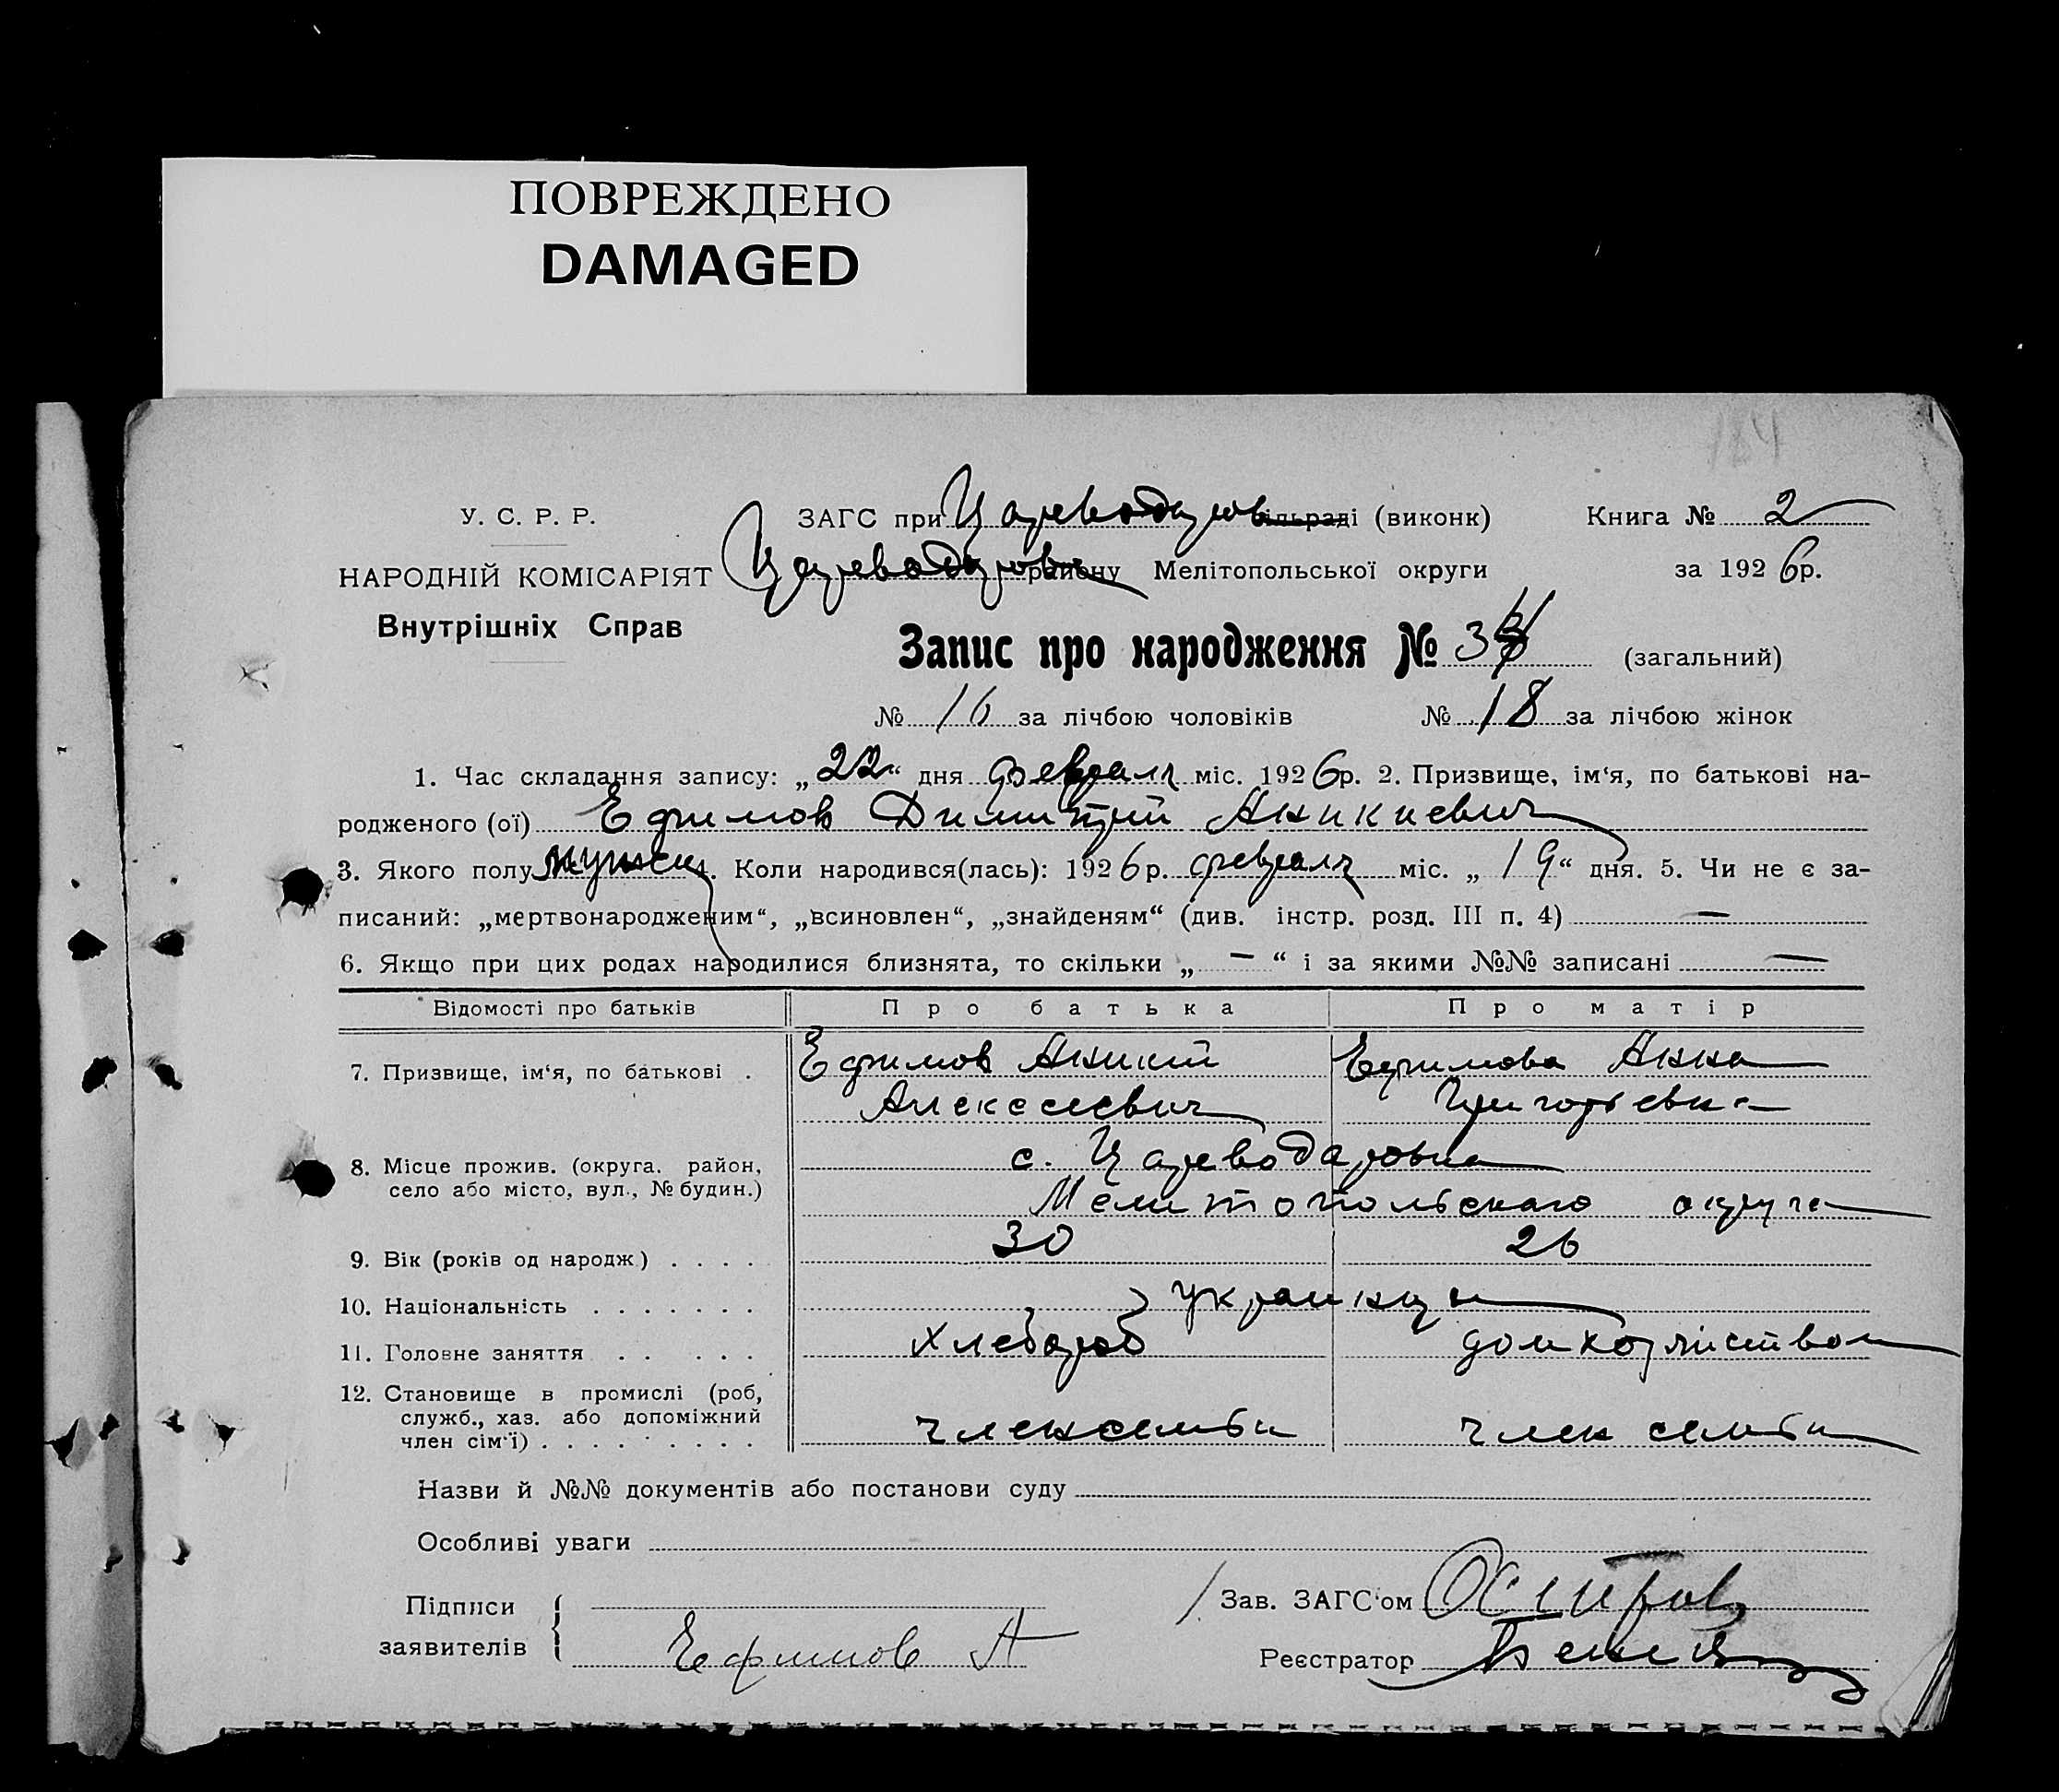 ПОВРЕЖДЕНО
DAMAGED
У. С. Р. Р.
НАРОДНІЙ КОМІСАРІЯТ
Внутрішніх Справ
ЗАГС при Цареводаров сільраді (виконк)
Книга № 2
Цареводаровка району Мелітопольської округи
за 1926р.
Запис про народження № 34 (загальний)
№ 16 за лічбою чоловіків № 18 за лічбою жінок
1. Час складання запису: „22“ дня февраля міс. 1926р. 2. Призвище, ім‘я, по батькові на-
родженого (ої) Ефимов Димитрий Аникиевич
3. Якого полу мужск 4. Коли народився(лась): 1926р. февраля міс. „19“ дня. 5. Чи не є за-
писаний: „мертвонародженим“, „всиновлен“, „знайденям“ (див. інстр. розд. III п. 4) —
6. Якщо при цих родах народилися близнята, то скільки „ — “ і за якими №№ записані —
Відомості про батьків Про батька Про матір
7. Призвище, ім‘я, по батькові . Ефимов Аникий Ефимова Анна
Алексеевич Григорьевна
8. Місце прожив. (округа. район, село або місто, вул., № будин.) с. Цареводаровка
Мелитопольскаго округа
9. Вік (років од народж.) . . . . 30 26
10. Національність . . . . . . . украинцы
11. Головне заняття . . . . . хлебороб домхозяйством
12. Становище в промислі (роб,
служб., хаз. або допоміжний
член сім‘ї) . . . . . . . . . член семьи член семьи
Назви й №№ документів або постанови суду
Особливі уваги
Підписи
заявителів
Ефимов А
Зав. ЗАГС‘ом
Реєстратор